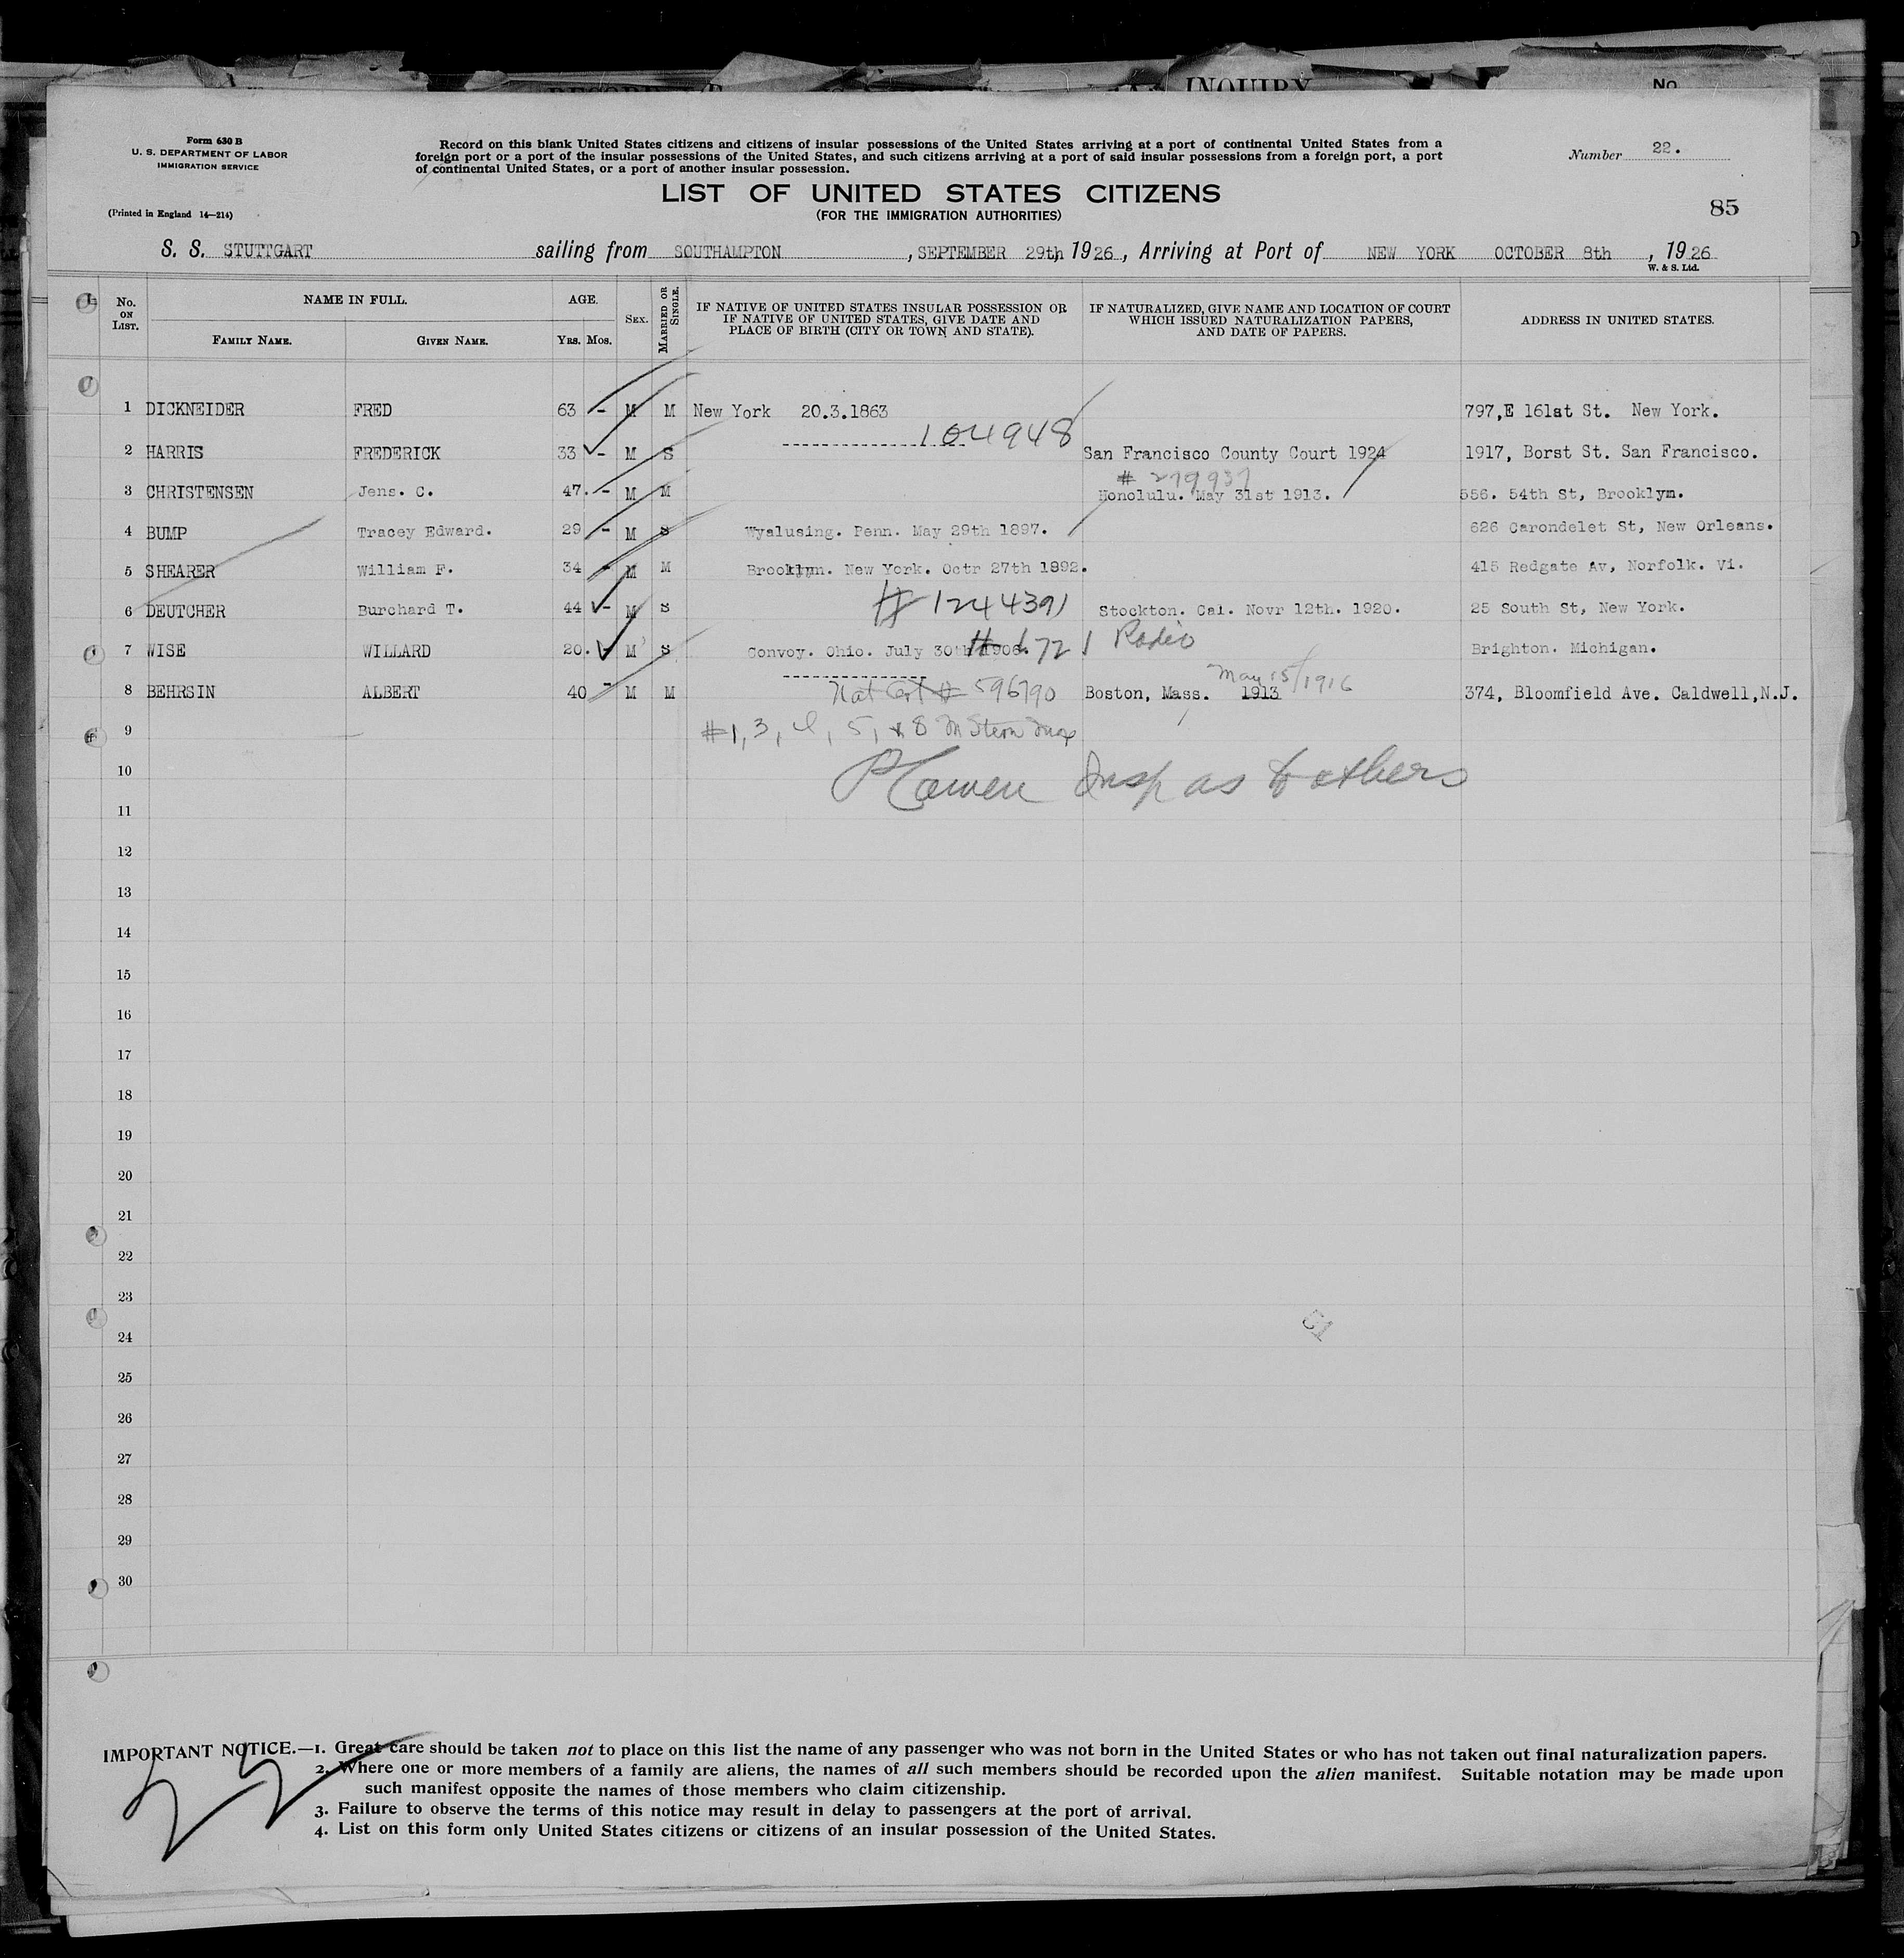 INQUIRY
No.
Form 630 B
U. S. DEPARTMENT OF LABOR
IMMIGRATION SERVICE
(Printed in England 14—214)
Record on this blank United States citizens and citizens of insular possessions of the United States arriving at a port of continental United States from a
foreign port or a port of the insular possessions of the United States, and such citizens arriving at a port of said insular possessions from a foreign port, a port
of continental United States, or a port of another insular possession.
Number 22.
LIST OF UNITED STATES CITIZENS
(FOR THE IMMIGRATION AUTHORITIES)
85
S. S. STUTTGART sailing from SOUTHAMPTON, SEPTEMBER 29th, 1926, Arriving at Port of NEW YORK OCTOBER 8th, 1926
W. & S. Ltd.
No. ON LIST. NAME IN FULL. FAMILY NAME. GIVEN NAME. AGE. YRS. MOS. SEX. MARRIED OR SINGLE. IF NATIVE OF UNITED STATES INSULAR POSSESSION OR IF NATIVE OF UNITED STATES, GIVE DATE AND PLACE OF BIRTH (CITY OR TOWN AND STATE). IF NATURALIZED, GIVE NAME AND LOCATION OF COURT WHICH ISSUED NATURALIZATION PAPERS, AND DATE OF PAPERS. ADDRESS IN UNITED STATES.
1 DICKNEIDER FRED 63 - M M New York 20.3.1863 797,E 161st St. New York.
104948
2 HARRIS FREDERICK 33 - M S San Francisco County Court 1924 1917, Borst St. San Francisco.
3 CHRISTENSEN Jens. C. 47. - M M Honolulu. May 31st 1913. 556. 54th St, Brooklyn.
4 BUMP Tracey Edward. 29 - M S Wyalusing. Penn. May 29th 1897. 626 Carondelet St, New Orleans.
5 SHEARER William F. 34 - M M Brooklyn. New York. Octr 27th 1892. 415 Redgate Av, Norfolk. Vi.
6 DEUTCHER Burchard T. 44 - M S # 1244391 Stockton. Cal. Novr 12th. 1920. 25 South St, New York.
7 WISE WILLARD 20. - M S Convoy. Ohio. July 30th 1906. Radio Brighton. Michigan.
May 15/1916
8 BEHRSIN ALBERT 40 - M M Nat Cert # 596790 Boston, Mass. 1913 374, Bloomfield Ave. Caldwell,N.J.
9 #1, 3, 4, 5, & 8
10 Insp as to others
11
12
13
14
15
16
17
18
19
20
21
22
23
24
25
26
27
28
29
30
IMPORTANT NOTICE.—1. Great care should be taken not to place on this list the name of any passenger who was not born in the United States or who has not taken out final naturalization papers.
2. Where one or more members of a family are aliens, the names of all such members should be recorded upon the alien manifest. Suitable notation may be made upon
such manifest opposite the names of those members who claim citizenship.
3. Failure to observe the terms of this notice may result in delay to passengers at the port of arrival.
4. List on this form only United States citizens or citizens of an insular possession of the United States.